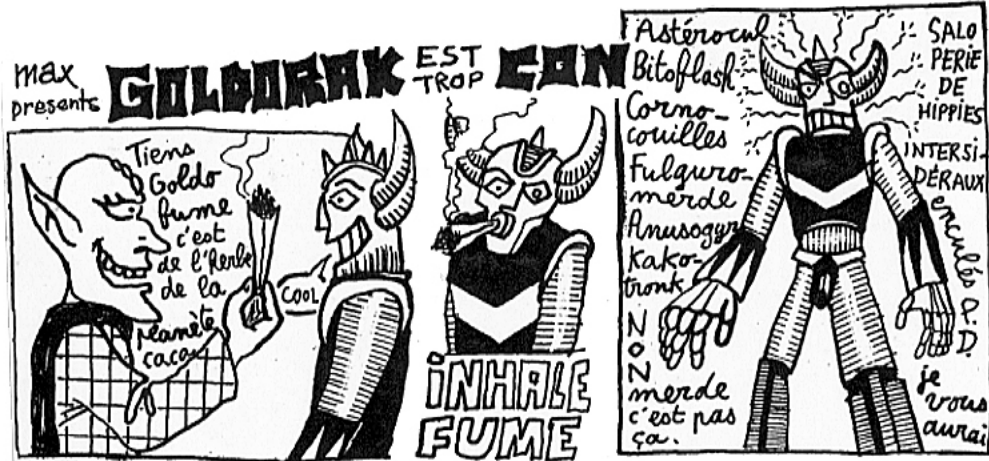 max
presents
GOLDORAK
EST
TROP
CON
Tiens
Goldo
fume
c'est
de l'herbe
de la
planète
caca
COOL
INHALE
FUME
Astérocul
Bitoflash
Corno-
couilles
Fulguro-
merde
Anusogyr
Kako-
tronk
NON
merde
c'est pas
ça.
SALO
PERIE
DE
HIPPIES
INTERSI-
DÉRAUX
enculés P.D.
je
vous
aurai